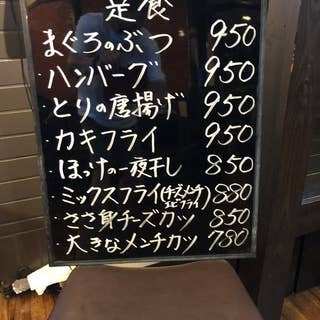 定食
まぐろのぶつ 950
・ハンバーグ 950
・とりの唐揚げ 950
・カキフライ 950
・ほっけの一夜干し 850
・ミックスフライ(チーズメンチ エビフライ) 880
・ささ身チーズカツ 850
・大きなメンチカツ 780